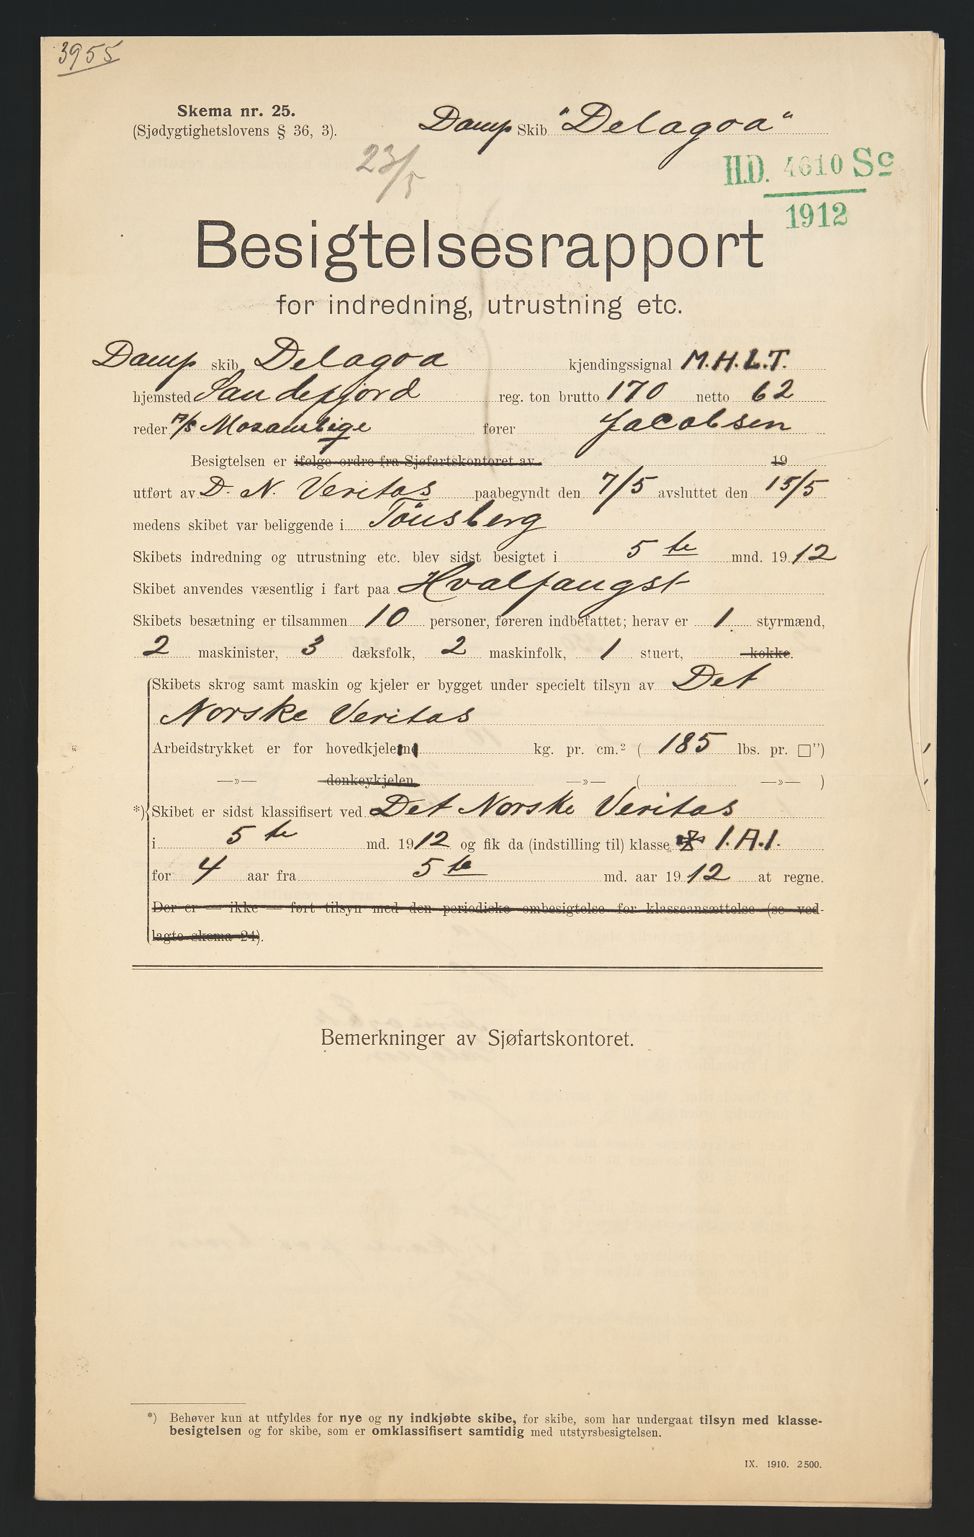 3955
Skema nr. 25.
(Sjødygtighetslovens § 36, 3).
Damp Skib "Delagoa"
23/5
H.D. 4610 Sc
1912
Besigtelsesrapport
for indredning, utrustning etc.
Damp skib Delagoa kjendingssignal M.H.L.T.
hjemsted Sandefjord reg. ton brutto 170 netto 62
reder A/S Mosambige fører Jacobsen
Besigtelsen er ifølge ordre fra Sjøfartskontoret av 19
utført av D. N. Veritas paabegyndt den 7/5 avsluttet den 15/5
medens skibet var beliggende i Tönsberg
Skibets indredning og utrustning etc. blev sidst besigtet i 5te mnd. 1912
Skibet anvendes væsentlig i fart paa Hvalfangst
Skibets besætning er tilsammen 10 personer, føreren indbefattet; herav er 1 styrmænd,
2 maskinister, 3 dæksfolk, 2 maskinfolk, 1 stuert, kokke.
Skibets skrog samt maskin og kjeler er bygget under specielt tilsyn av Det
Norske Veritas
Arbeidstrykket er for hovedkjelen kg. pr. cm.² ( 185 lbs. pr. □")
—»— donkeykjelen —»— ( —»— )
*) Skibet er sidst klassifisert ved Det Norske Veritas
i 5te md. 1912 og fik da (indstilling til) klasse 1.A.1.
for 4 aar fra 5te md. aar 1912 at regne.
Der er — ikke — ført tilsyn med den periodiske ombesigtelse for klasseansættelse (se ved-
lagte skema 24).
Bemerkninger av Sjøfartskontoret.
*) Behøver kun at utfyldes for nye og ny indkjøbte skibe, for skibe, som har undergaat tilsyn med klasse-
besigtelsen og for skibe, som er omklassifisert samtidig med utstyrsbesigtelsen.
IX. 1910. 2500.